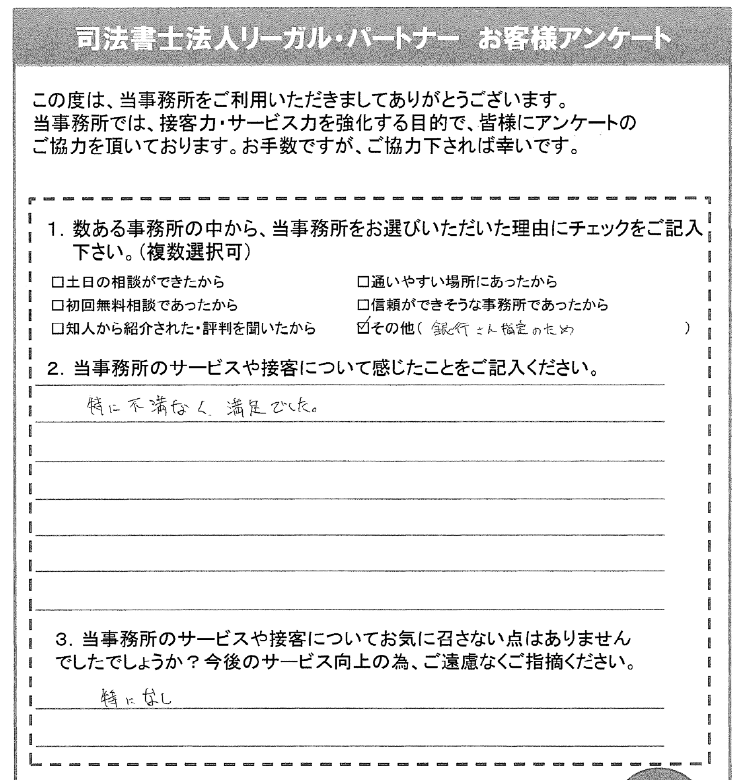 司法書士法人リーガル・パートナー お客様アンケート
この度は、当事務所をご利用いただきましてありがとうございます。
当事務所では、接客力・サービス力を強化する目的で、皆様にアンケートの
ご協力を頂いております。お手数ですが、ご協力下されば幸いです。
1. 数ある事務所の中から、当事務所をお選びいただいた理由にチェックをご記入
下さい。(複数選択可)
□土日の相談ができたから □通いやすい場所にあったから
□初回無料相談であったから □信頼ができそうな事務所であったから
□知人から紹介された・評判を聞いたから ☑その他( 銀行さん指定のため )
2. 当事務所のサービスや接客について感じたことをご記入ください。
特に不満なく、満足でした。
3. 当事務所のサービスや接客についてお気に召さない点はありません
でしたでしょうか？今後のサービス向上の為、ご遠慮なくご指摘ください。
特になし